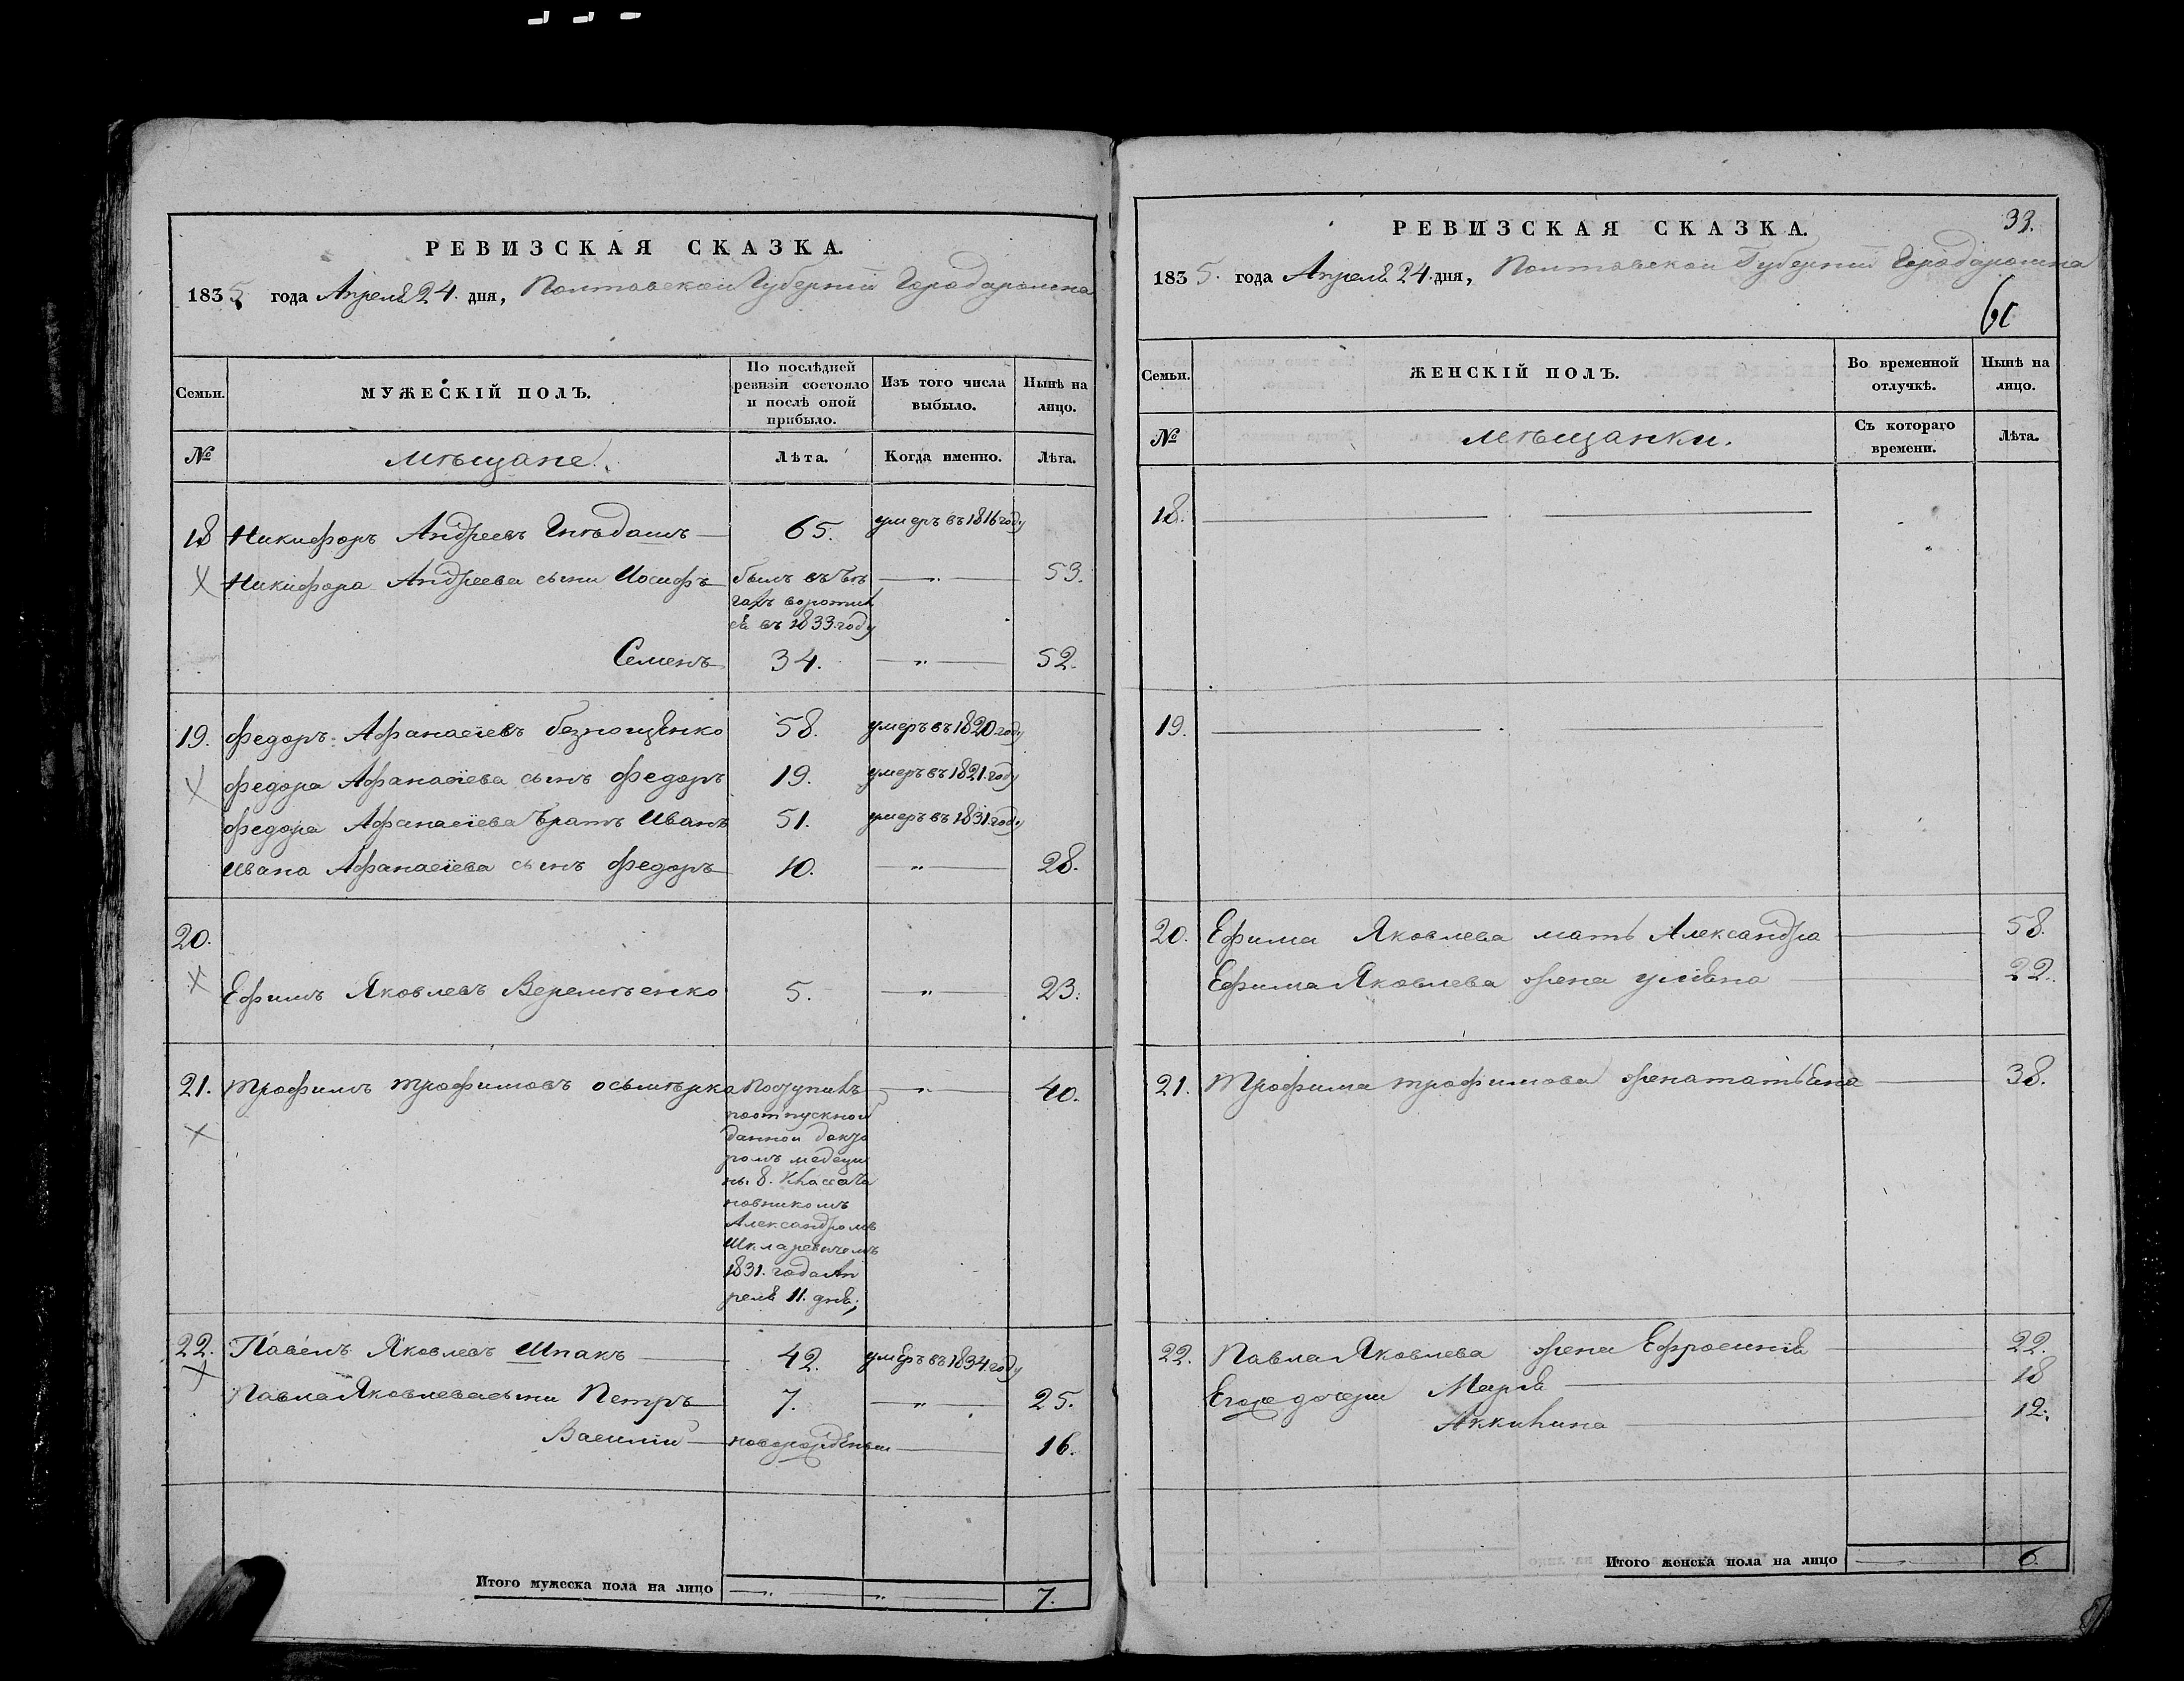 РЕВИЗСКАЯ СКАЗКА.
1835 года Апреля 24. дня, Полтавской Губернии Города
МУЖЕСКІЙ ПОЛЪ.
Семьи.
По послѣдней
ревизіи состояло
и послѣ оной
прибыло.
Изъ того числа
выбыло.
Нынѣ на
лицо.
№ мѣщане. Лѣта. Когда именно. Лѣта.
18 Никифоръ Андреевъ Гнѣдашъ 65. умеръ въ 1816 году
Никифора Андреева сыни Иосифъ былъ въ бѣ 53.
гахъ воротил
ся въ 1833. году
Семенъ 34. 52.
19. Федоръ Афанасіевъ безпощенко 58. умеръ въ 1820. году
Федора Афанасіева сынъ Федоръ 19. умеръ въ 1821. году
Федора Афанасіева братъ Иванъ 51. умеръ въ 1831. году
Ивана Афанасіева сынъ Федоръ 10. 28.
20.
Ефимъ Яковлевъ Веремѣенко 5. 23.
21. Трофимъ Трофимовъ осьмѣрка Поступилъ 40.
поотпускной
данной докто
ромъ медеци
ны. 8. Класса чи
новникомъ
Александромъ
Шкляревичемъ
1831. года Ап
реля 11. дня;
22. Павелъ Яковлевъ Шпакъ 42. умеръ въ 1834 году
Павла Яковлева сыни Петръ 7. 25.
Василий новорожденъ 16.
Итого мужеска пола на лицо 7.
33.
РЕВИЗСКАЯ СКАЗКА.
1835. года Апреля 24. дня, Полтавской Губернии Города
Семьи.
ЖЕНСКІЙ ПОЛЪ.
Во временной
отлучкѣ.
Нынѣ на
лицо.
№ мѣщанки.
Съ котораго
времени.
Лѣта.
18.
19.
20. Ефима Яковлева мать Александра 58.
Ефима Яковлева жена 22.
21. Трофима трофимова жена татьяна 38.
22. Павла Яковлева жена Ефросинія 22.
Егоже дочери Марія 18
Аккилина 12.
Итого женска пола на лицо 6